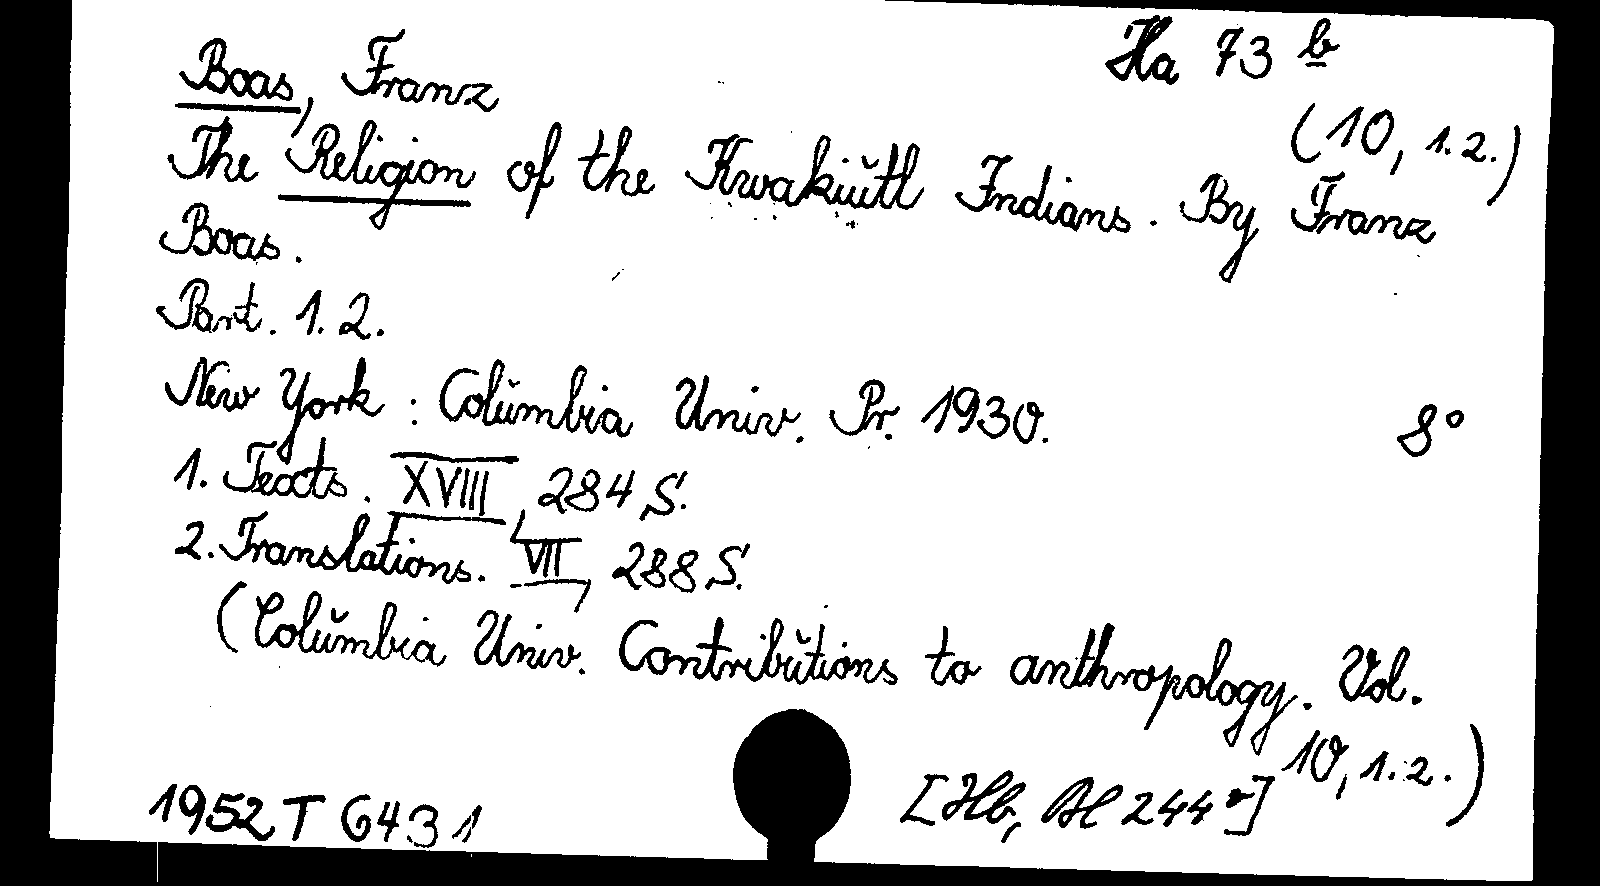 Ha 73 b
Boas, Franz
(10, 1.2.)
The Religion of the Kwakiutl Indians. By Franz
Boas.
Part. 1.2.
New York : Columbia Univ. Pr. 1930. 8°
1. Texts. XVIII, 284 S.
2. Translations. VII, 288 S.
(Columbia Univ. Contributions to anthropology. Vol.
10, 1.2.)
1952 T 6431 [Hb, Al 244 r]